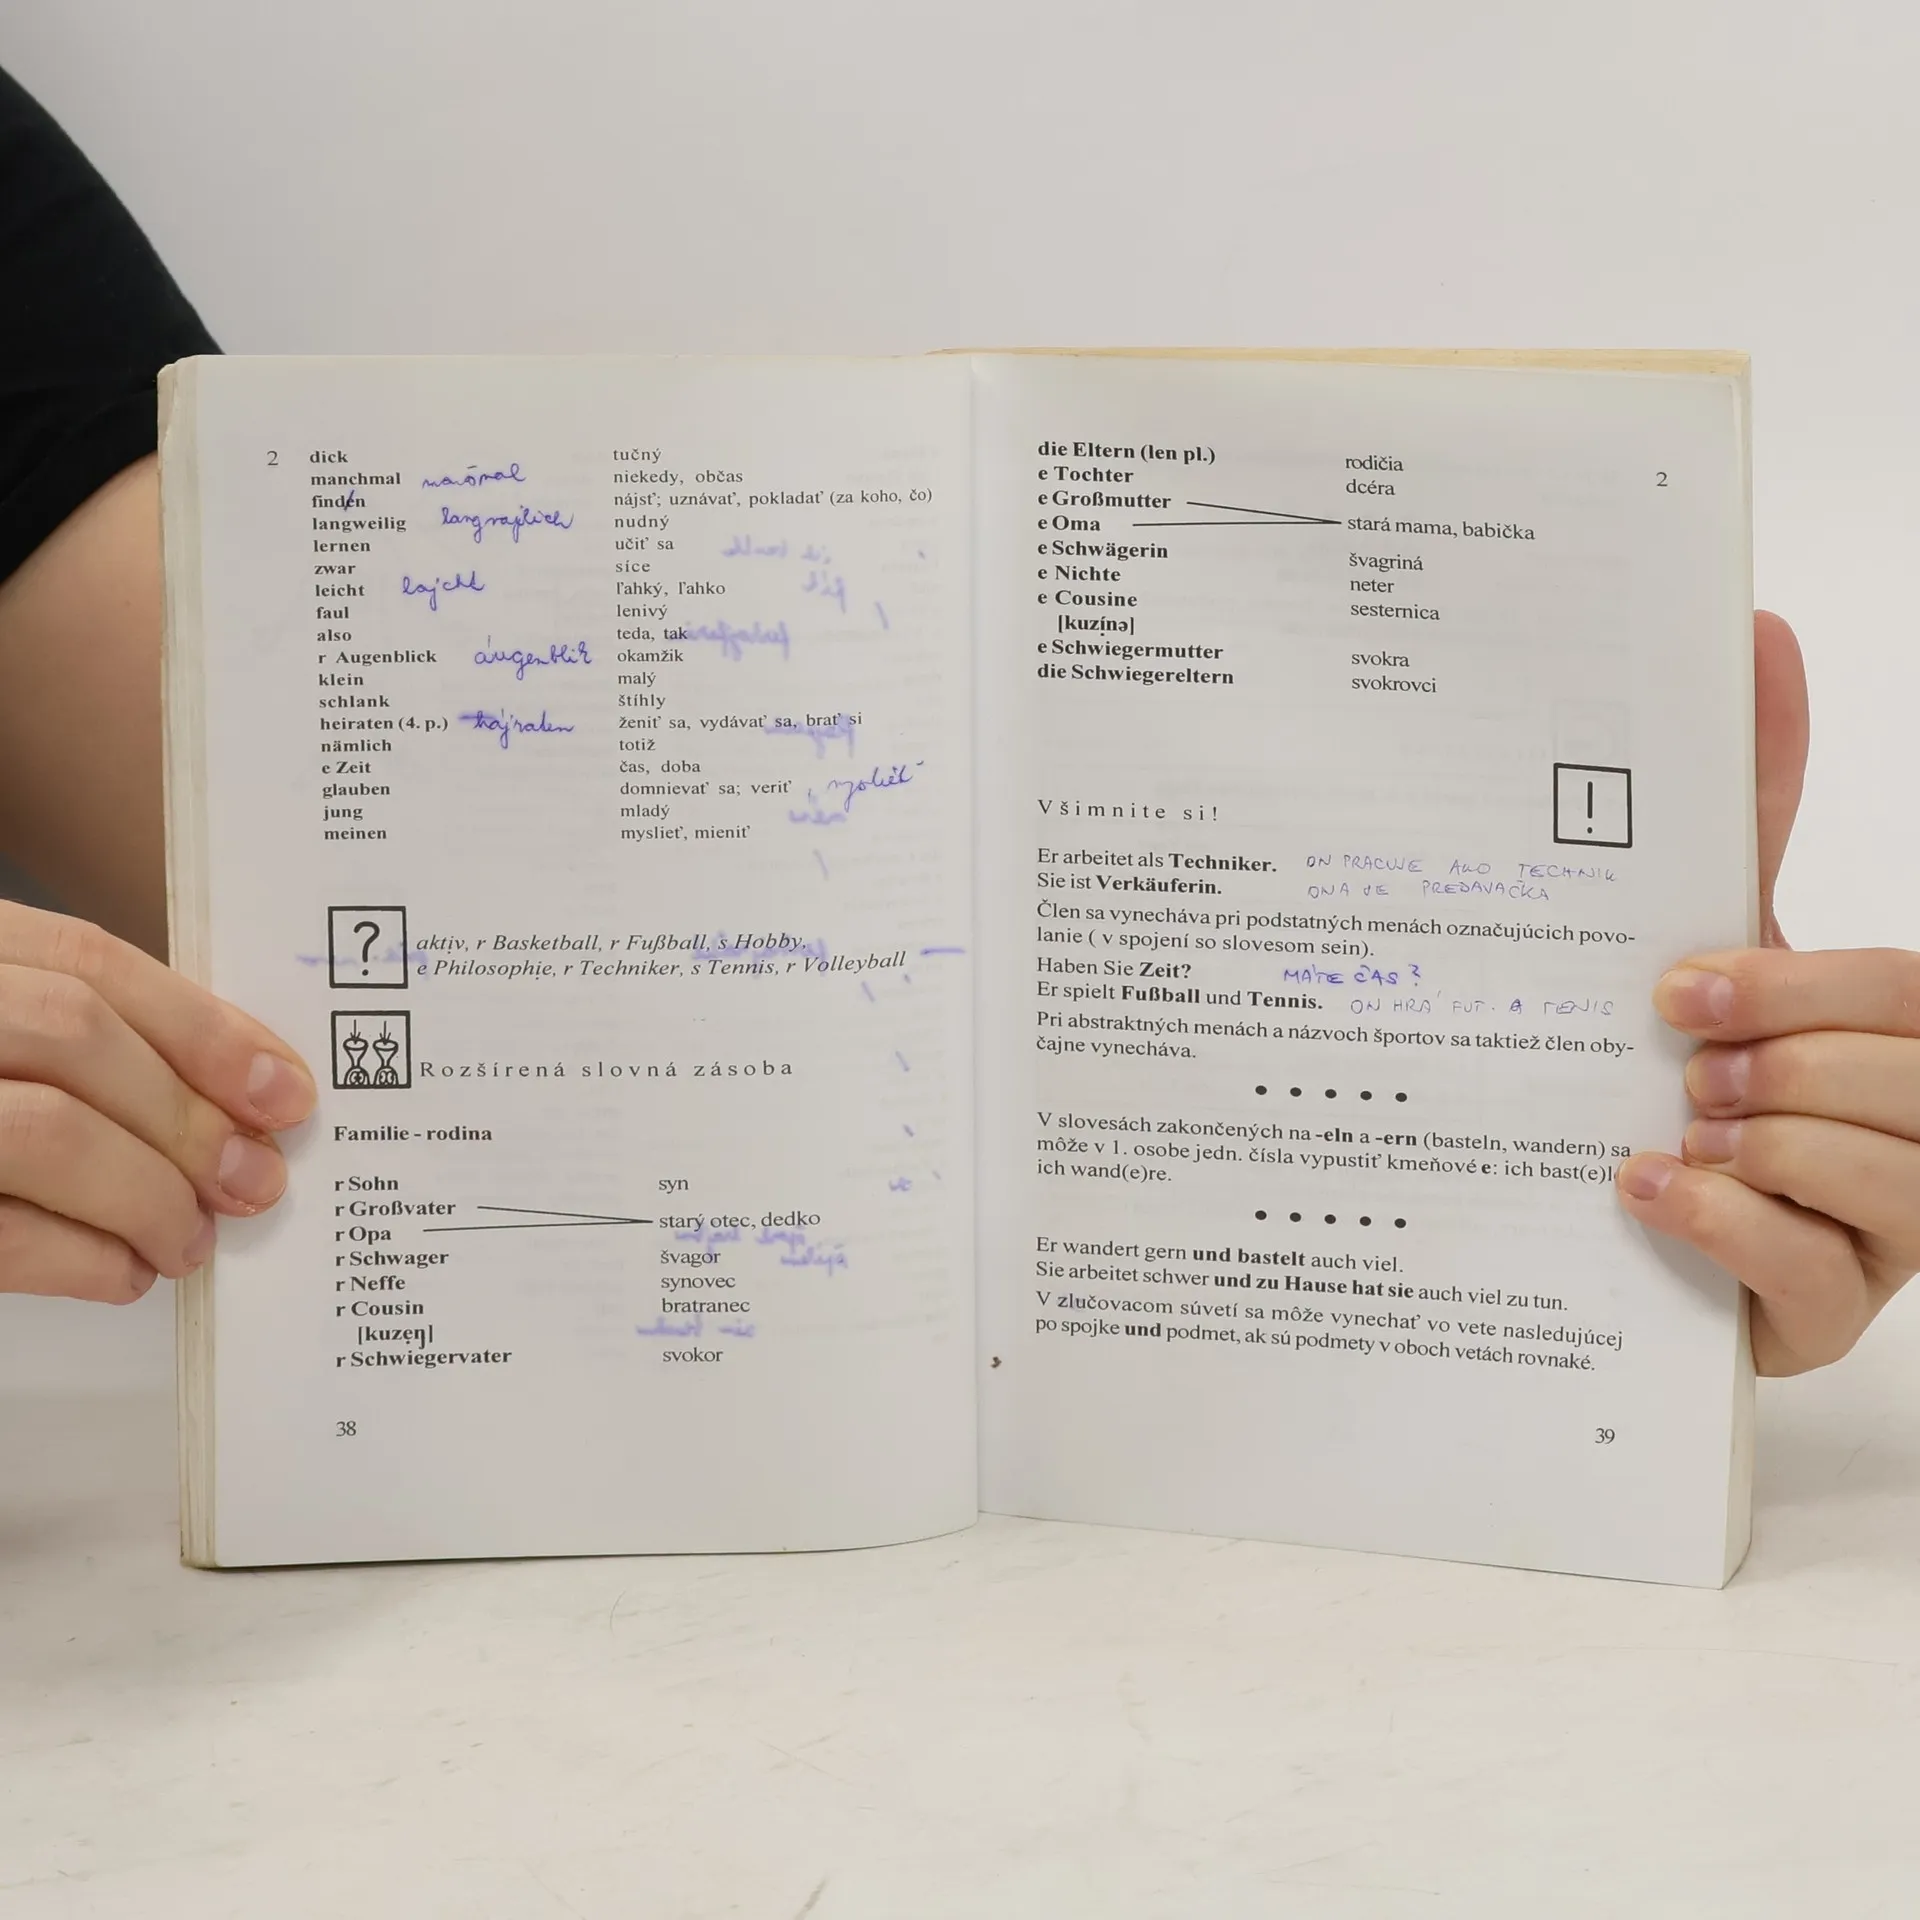 2 dick tučný
manchmal niekedy, občas
finden nájsť; uznávať, pokladať (za koho, čo)
langweilig langvajlich nudný
lernen učiť sa
zwar síce
leicht lajcht ľahký, ľahko
faul lenivý
also teda, tak
r Augenblick áugenblik okamžik
klein malý
schlank štíhly
heiraten (4. p.) hájraten ženiť sa, vydávať sa, brať si
nämlich totiž
e Zeit čas, doba
glauben domnievať sa; veriť
jung mladý
meinen myslieť, mieniť
? aktiv, r Basketball, r Fußball, s Hobby,
e Philosophie, r Techniker, s Tennis, r Volleyball
Rozšírená slovná zásoba
Familie - rodina
r Sohn syn
r Großvater
starý otec, dedko
r Opa
r Schwager švagor
r Neffe synovec
r Cousin bratranec
[kuzẹŋ]
r Schwiegervater svokor
38
die Eltern (len pl.) rodičia
e Tochter dcéra 2
e Großmutter
e Oma stará mama, babička
e Schwägerin švagriná
e Nichte neter
e Cousine sesternica
[kuzịnə]
e Schwiegermutter svokra
die Schwiegereltern svokrovci
Všimnite si! !
Er arbeitet als Techniker. ON PRACUJE AKO TECHNIK
Sie ist Verkäuferin. ONA JE PREDAVAČKA
Člen sa vynecháva pri podstatných menách označujúcich povo-
lanie ( v spojení so slovesom sein).
Haben Sie Zeit? MÁTE ČAS?
Er spielt Fußball und Tennis. ON HRÁ FUT. A TENIS
Pri abstraktných menách a názvoch športov sa taktiež člen oby-
čajne vynecháva.
• • • • •
V slovesách zakončených na -eln a -ern (basteln, wandern) sa
môže v 1. osobe jedn. čísla vypustiť kmeňové e: ich bast(e)l
ich wand(e)re.
• • • • •
Er wandert gern und bastelt auch viel.
Sie arbeitet schwer und zu Hause hat sie auch viel zu tun.
V zlučovacom súvetí sa môže vynechať vo vete nasledujúcej
po spojke und podmet, ak sú podmety v oboch vetách rovnaké.
39